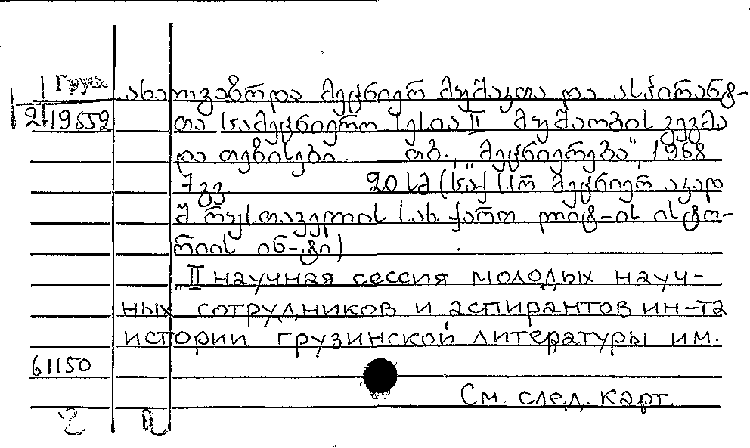 Груз
21 19652
ახალგაზრდა მეცნიერ მუშაკთა და ასპირანტ-
თა სამეცნიერო სესია II მუშაობის გეგმა
და თეზისები. თბ., "მეცნიერება", 1968
7 გვ. 20 სმ (საქ. სსრ მეცნიერ. აკად
შ. რუსთაველის სახ. ქართ. ლიტ-ის ისტო-
რიის ინ-ტი)
II научная сессия молодых науч-
ных сотрудников и аспирантов ин-та
истории грузинской литературы им.
61150
См. след. карт.